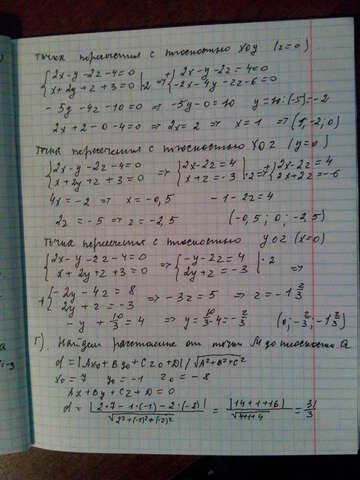 точка пересечения с плоскостью XOY (z=0)
{2x-y-2z-4=0 |+{2x-y-2z=4=0
{x+2y+z+3=0 |·2 => {-2x-4y-2z-6=0
-5y-4z-10=0 => -5y-0=10 y=10:(-5)=-2
2x+2-0-4=0 => 2x=2 => x=1 => (1,-2,0)
Точка пересечения с плоскостью XOZ (y=0)
{2x-y-2z-4=0 => {2x-2z=4 +{2x-2z=4
{x+2y+z+3=0 => {x+z=-3 |·2 => {2x+2z=-6
4x=-2 => x=-0,5 -1-2z=4
2z=-5 => z=-2,5 (-0,5; 0; -2,5)
Точка пересечения с плоскостью YOZ (x=0)
{2x-y-2z-4=0 => {-y-2z=4 |·2
{x+2y+z+3=0 => {2y+z=-3 =>
+{-2y-4z=8 => -3z=5 => z=-1 2/3
{2y+z=-3
-y+10/3=4 => y=10/3-4=-2/3 (0;-2/3;-1 2/3)
Г). Найдем расстояние от точки M до плоскости Q
d=|Ax₀+By₀+Cz₀+D|/√A²+B²+C²
x₀=7 y₀=-1 z₀=-8
Ax+By+Cz+D=0
d=|2·7-1·(-1)-2·(-8)|/√2²+(-1)²+(-2)² = |14+1+16|/√4+1+4 = 31/3